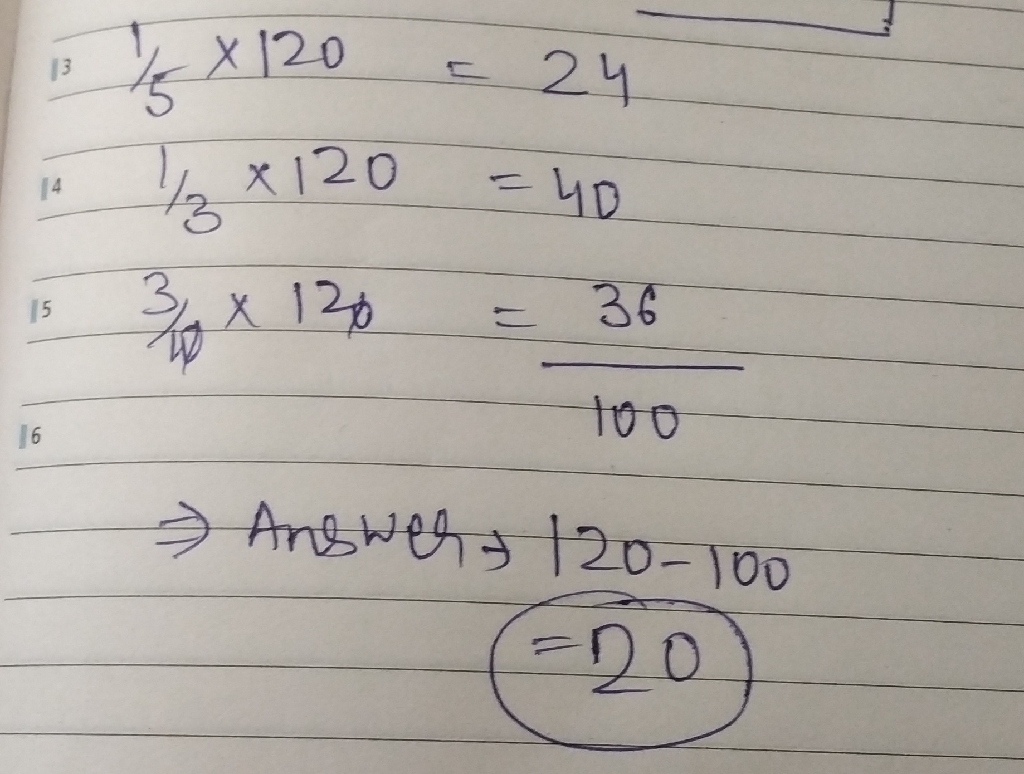 13 1/5 × 120 = 24
14 1/3 × 120 = 40
15 3/10 × 120 = 36
16 100
⇒ Answer → 120 - 100
= 20